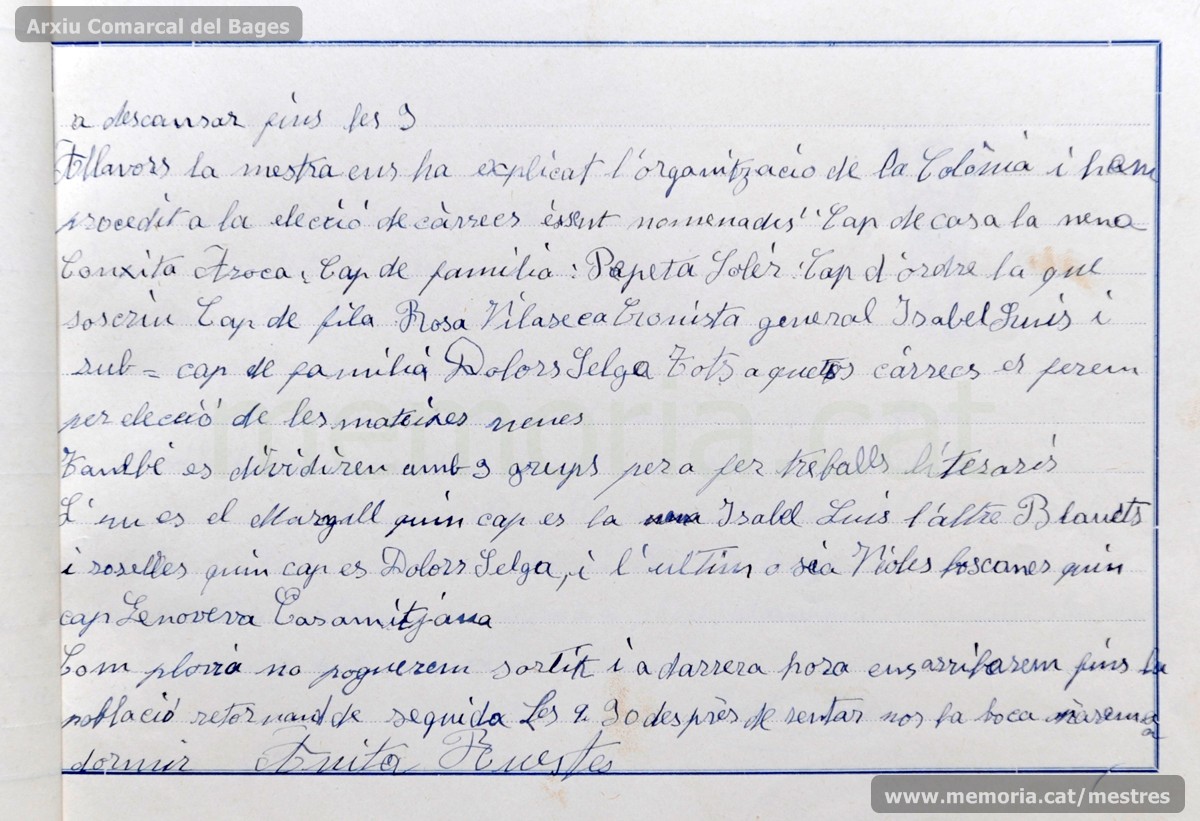 Arxiu Comarcal del Bages
a descansar fins les 3
Allavors la mestra ens ha explicat l'organització de la Colònia i hem
procedit a la elecció de càrrecs éssent nomenades: Cap de casa la nena
Conxita Aroca, Cap de familia: Pepeta Solér. Cap d'ordre la que
soscriu Cap de fila Rosa Vilaseca Cronista general Isabel Luis i
sub = cap de familia Dolors Selga Tots aquetos càrrecs es ferem
per elecció de les mateixes nenes
També es dividiren amb 3 grups per a fer treballs literaris
L'un es el Margall quin cap es la Isabel Luis l'altre Blauets
i roselles quin cap es Dolors Selga, i l'ultim o sia Violes boscanes quin
cap Genoveva Casamitjana
Com plovia no poguerem sortir i a darrera hora ens arribarem fins la
població retornant de seguida Les 9.30 desprès de rentar nos la boca anarem a
dormir Anita Rustes
memoria.cat
www.memoria.cat/mestres